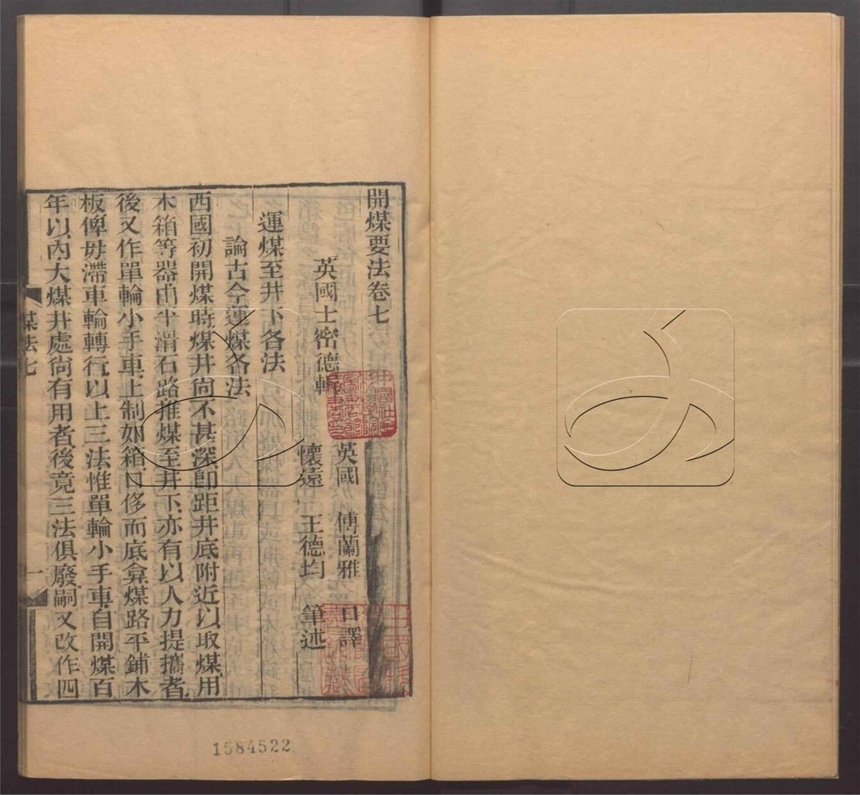 開煤要法卷七
英國士密德輯
英國 傅蘭雅 口譯
懷遠 王德均 筆述
運煤至井下各法
論古今運煤各法
西國初開煤時煤井尙不甚深卽距井底附近以取煤用
木箱等器由平滑石路推煤至井下亦有以人力提攜者
後又作單輪小手車上制如箱口侈而底弇煤路平鋪木
板俾毋滯車輪轉行以上三法惟單輪小手車自開煤百
年以內大煤井處尙有用者後竟三法俱廢嗣又改作四
煤法七
一
1584522